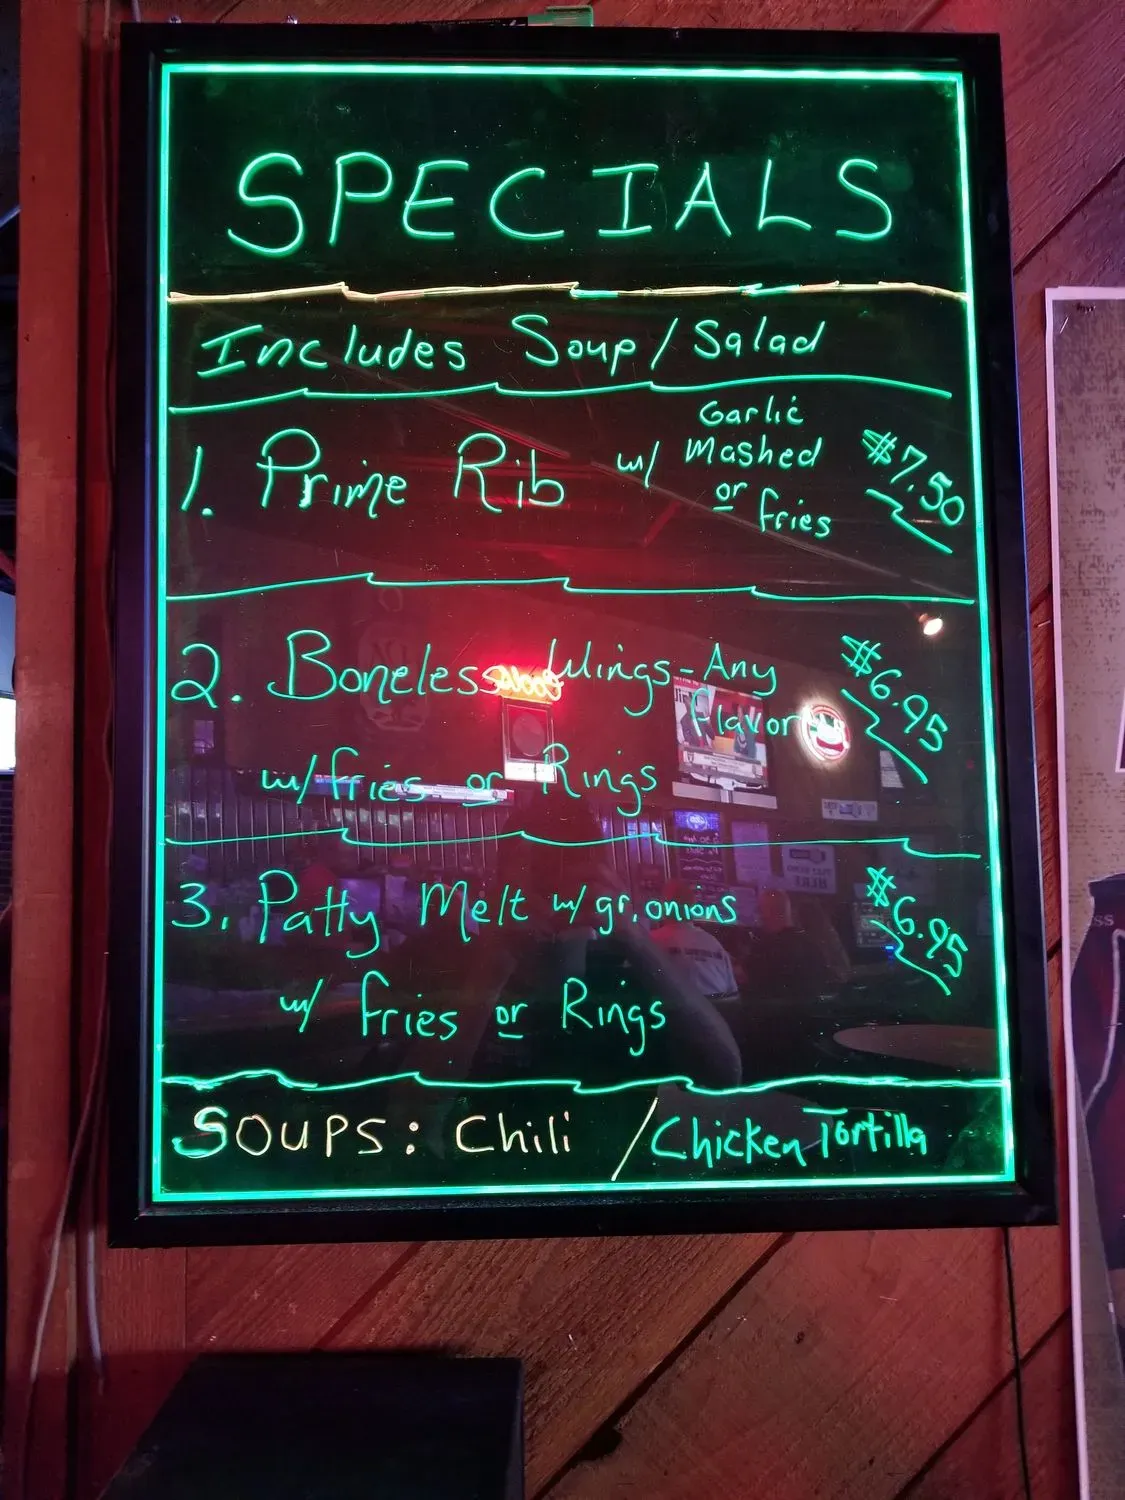 SPECIALS
Includes Soup/Salad
1. Prime Rib w/ Garlic Mashed or fries $7.50
2. Boneless Wings-Any flavor $6.95
w/fries or Rings
3. Patty Melt w/gr. onions $6.95
w/ fries or Rings
SOUPS: Chili / Chicken Tortilla